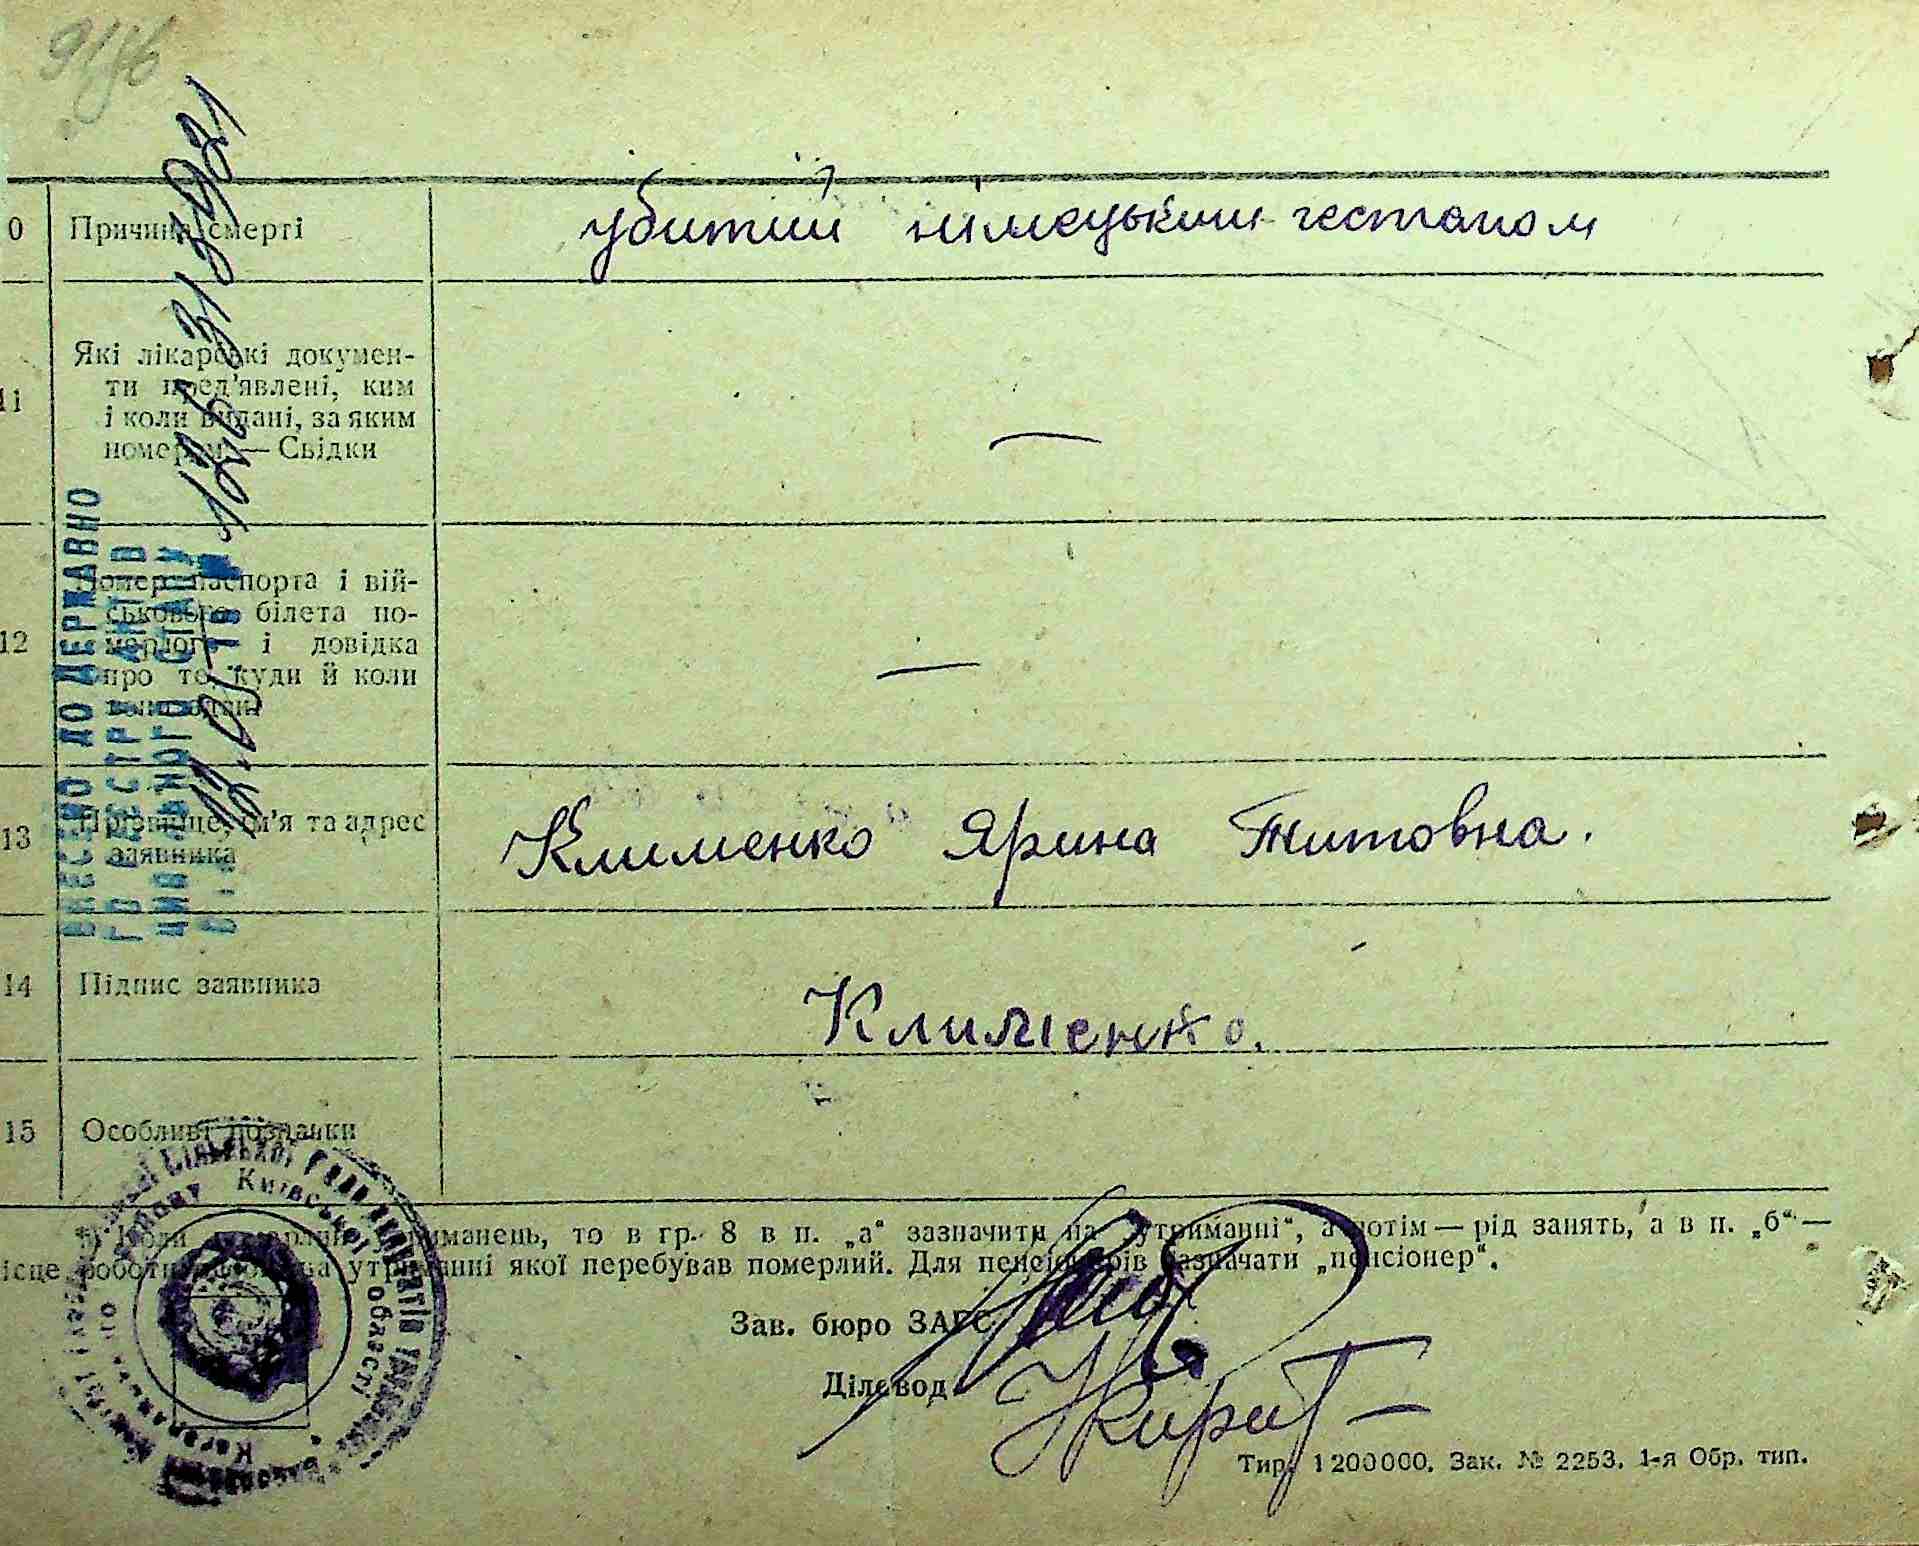 0 Причина смерті убитий німецьким гестапом
11 Які лікарські докумен-
ти пред'явлені, ким
і коли видані, за яким
номером — Свідки —
12 Номер паспорта і вій-
ськового білета по-
мерлого і довідка
про то, куди й коли
—
13 Прізвище, ім'я та адрес
заявника
Клименко Ярина Титовна.
14 Підпис заявника
Клименко.
15 Особливі позначки
ВНЕСЕНО ДО ДЕРЖАВНО
ГО РЕЄСТРУ АКТІВ
ЦИВІЛЬНОГО СТАНУ
Київської області
зазначити на „утриманні“, а потім — рід занять, а в п. „б“ —
ісце роботи утриманні якої перебував померлий. Для пенсіонерів зазначати „пенсіонер“.
Зав. бюро ЗАГС
Діловод
Тир. 1200000. Зак. № 2253. 1-я Обр. тип.